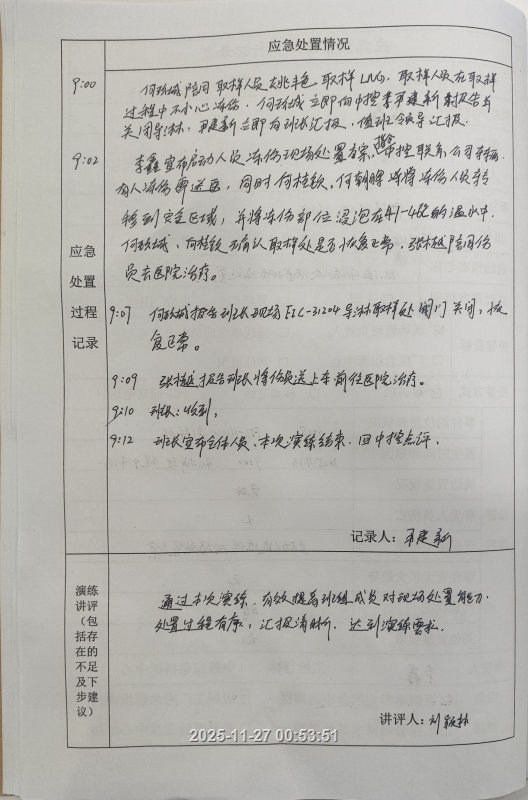 应急处置情况
9:00 何政城陪同取样人员姚丰色取样LNG,取样人员在取样
过程中不小心冻伤,何政城立即向中控李建新报告并
关闭导淋。建新立即向班长汇报,值班领导汇报。
9:02 李鑫宣布启动人员冻伤现场处置方案,指令中控联系公司车辆
有人冻伤需送医,同时何桂钦、何朝晖将冻伤人员转
移到安全区域,并将冻伤部位浸泡在41-42的温水中。
何政城、何桂钦确认取样处是否恢复正常,张越陪同伤
员去医院治疗。
应急
处置
过程
记录
9:07 何政城报告班长现场FIC-31204导淋取样处阀门关闭,恢
复正常。
9:09 张越报告班长将伤员送上车前往医院治疗。
9:10 班长:收到。
9:12 班长宣布全体人员,本次演练结束,回中控点评。
记录人:建新
演练
讲评
(包
括存
在的
不足
及下
步建
议)
通过本次演练,有效提高班组成员对现场处置能力,
处置过程有序,汇报清晰,达到演练要求。
讲评人:刘
2025-11-27 00:53:51